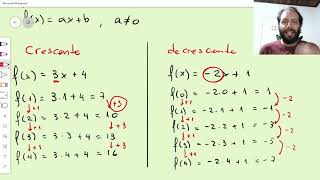 f(x) = ax+b , a≠0
Crescente
f(x) = 3x+4
f(1) = 3.1+4 = 7
+1
+3
f(2) = 3.2+4 = 10
+1
+3
f(3) = 3.3+4 = 13
+1
+3
f(4) = 3.4+4 = 16
decrescente
f(x) = -2x+1
f(0) = -2.0+1 = 1
+1
-2
f(1) = -2.1+1 = -1
+1
-2
f(2) = -2.2+1 = -3
+1
-2
f(3) = -2.3+1 = -5
+1
-2
f(4) = -2.4+1 = -7